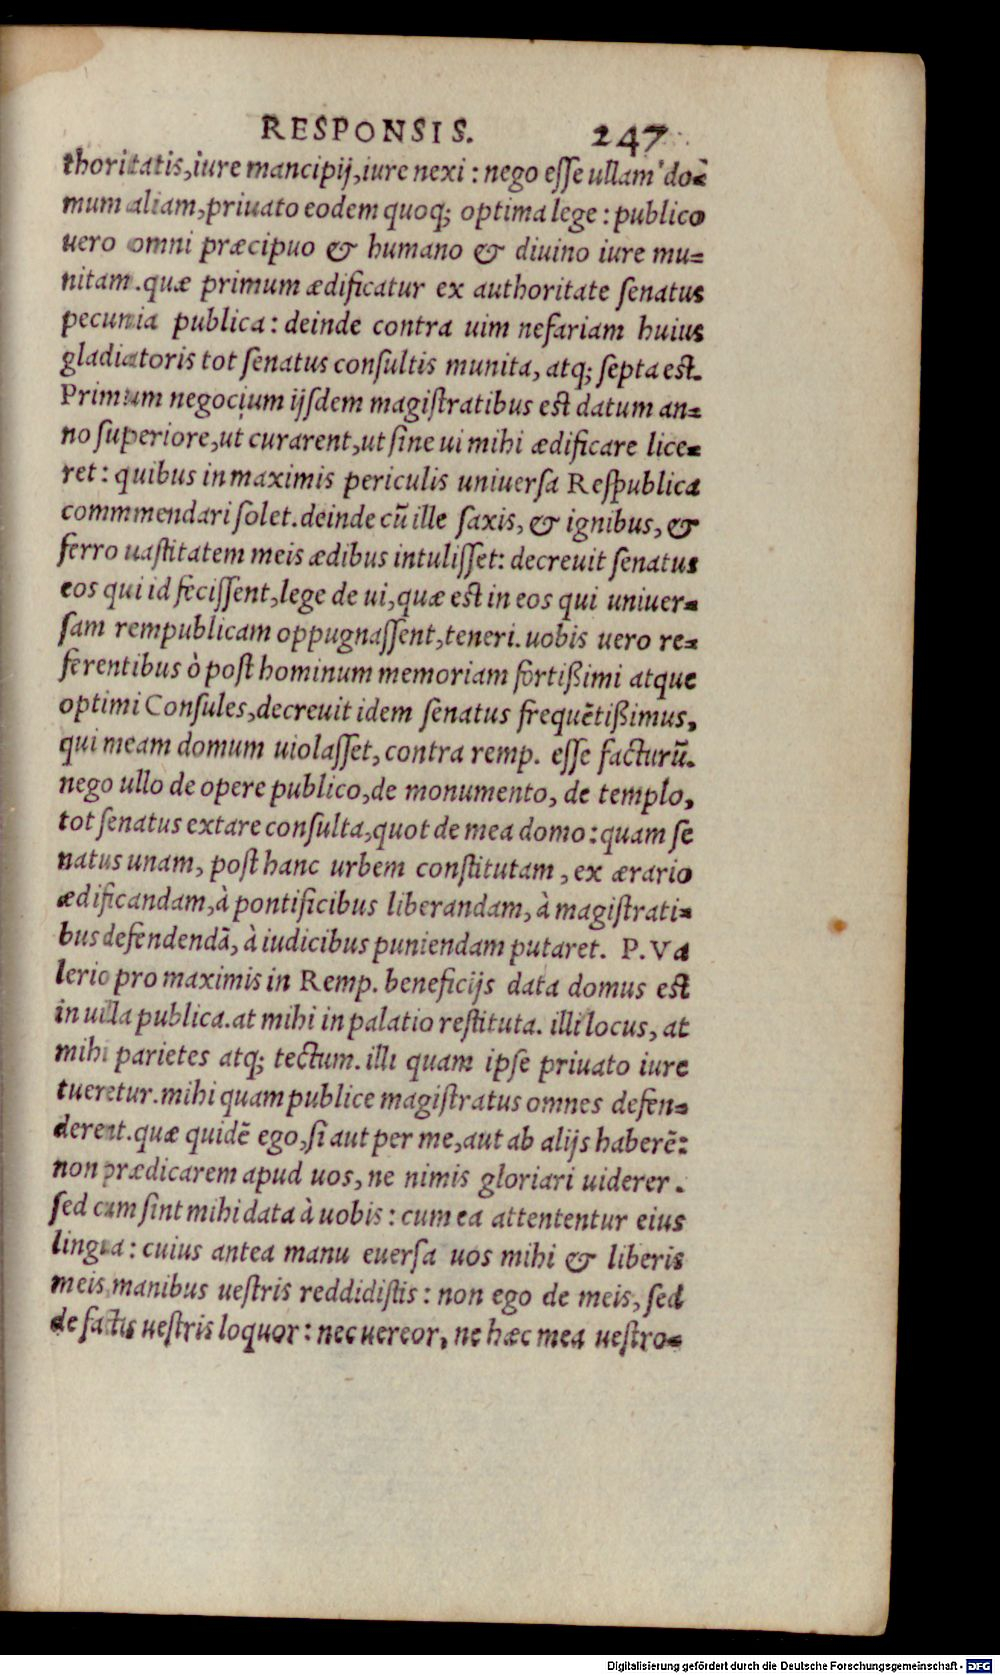 RESPONSIS. 247
thoritatis,iure mancipij,iure nexi : nego esse ullam do=
mum aliam,priuato eodem quoq; optima lege : publico
uero omni præcipuo & humano & diuino iure mu=
nitam.quæ primum ædificatur ex authoritate senatus
pecunia publica : deinde contra uim nefariam huius
gladiatoris tot senatus consultis munita, atq; septa est.
Primum negocium ijsdem magistratibus est datum an=
no superiore,ut curarent,ut sine ui mihi ædificare lice=
ret : quibus in maximis periculis uniuersa Respublica
commmendari solet.deinde cū ille saxis, & ignibus, &
ferro uastitatem meis ædibus intulisset: decreuit senatus
eos qui id fecissent,lege de ui,quæ est in eos qui uniuer=
sam rempublicam oppugnassent,teneri.uobis uero re=
ferentibus ò post hominum memoriam fortißimi atque
optimi Consules,decreuit idem senatus frequētißimus,
qui meam domum uiolasset, contra remp. esse facturū.
nego ullo de opere publico,de monumento, de templo,
tot senatus extare consulta,quot de mea domo : quam se
natus unam, post hanc urbem constitutam , ex ærario
ædificandam,à pontificibus liberandam, à magistrati=
bus defendendā, à iudicibus puniendam putaret. P. Va
lerio pro maximis in Remp. beneficijs data domus est
in uilla publica.at mihi in palatio restituta. illi locus, at
mihi parietes atq; tectum. illi quam ipse priuato iure
tueretur.mihi quam publice magistratus omnes defen=
derent.quæ quidē ego,si aut per me,aut ab alijs haberē:
non prædicarem apud uos, ne nimis gloriari uiderer .
sed cum sint mihi data à uobis : cum ea attententur eius
lingua : cuius antea manu euersa uos mihi & liberis
meis manibus uestris reddidistis : non ego de meis, sed
de factis uestris loquor : nec uereor, ne hæc mea uestro=
Digitalisierung gefördert durch die Deutsche Forschungsgemeinschaft - DFG